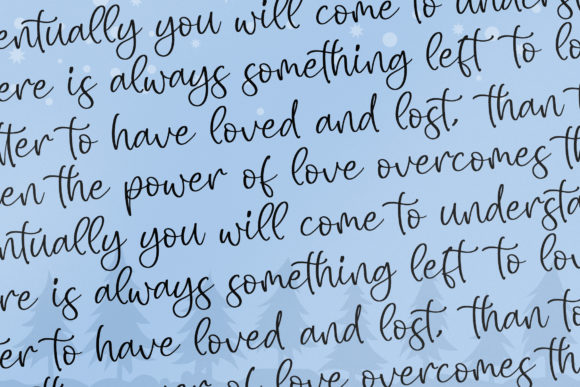 entually you will come to underst
ere is always something left to lo
tter to have loved and lost, than t
en the power of love overcomes th
ntually you will come to understa
re is always something left to lov
ter to have loved and lost, than to
the power of love overcomes the